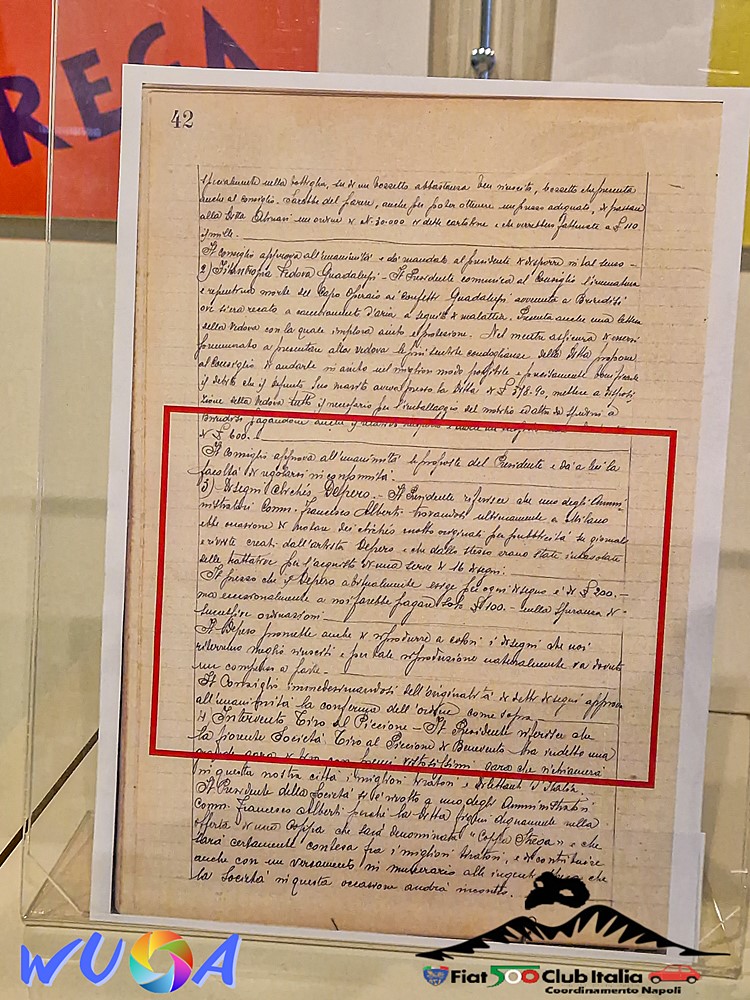 REGA
42
specialmente nella bottiglia, su di un bozzetto abbastanza ben riuscito, bozzetto che presenta
anche al Consiglio. Sarebbe del parere, anche per poter ottenere un prezzo adeguato, di passare
alla Ditta un ordine di N. 30.000 di dette cartoline e che verrebbero fatturate a £ 110
il mille.
Il Consiglio approva all'unanimità e dà mandato al presidente di disporre in tal senso -
2) Filantropia Vedova Guadalupi - Il Presidente comunica al Consiglio l'immatura
e repentina morte del Capo Operaio ai Confetti Guadalupi avvenuta a Brindisi
ove si era recato a cambiamento d'aria a seguito di malattia. Presenta anche una lettera
della vedova con la quale implora aiuto e protezione. Nel mentre assicura di essersi
premurato a presentare alla vedova le più sentite condoglianze della Ditta propone
al Consiglio di andarle in aiuto nel miglior modo possibile e precisamente
il debito che il defunto suo marito aveva presso la Ditta di £ 378.90, mettere a disposi-
zione della vedova tutto il necessario per l'imballaggio del mobilio ed altro da spedirsi a
Brindisi pagandone anche il
di £ 600.-
Il Consiglio approva all'unanimità le proposte del Presidente e dà a lui la
facoltà di regolarsi in conformità.
3) Disegni Clichés Depero. - Il Presidente riferisce che uno degli Ammi-
nistratori Comm. Francesco Alberti trovandosi ultimamente a Milano
ebbe occasione di notare dei clichés molto originali per pubblicità su giornali
e riviste creati dall'artista Depero e che dallo stesso erano state intavolate
delle trattative per l'acquisto di una serie di 16 disegni.
Il prezzo che il Depero abitualmente esige per ogni disegno è di £ 200.-
ma eccezionalmente a noi farebbe pagare solo £ 100.- nella speranza di
successive ordinazioni.
Il Depero promette anche di riprodurre a colori i disegni che noi
riterremo meglio riusciti e per tale riproduzione naturalmente va dovuto
un compenso a parte.
Il Consiglio immedesimandosi dell'originalità di detti disegni approva
all'unanimità la conferma dell'ordine come sopra.
4) Intervento Tiro al Piccione - Il Presidente riferisce che
la fiorente Società Tiro al Piccione di Benevento ha indetto una
grande gara di tiro con premi vistosissimi gara che richiamerà
in questa nostra città i migliori tiratori e dilettanti d'Italia.
Il Presidente della Società si è rivolto a uno degli Amministratori
Comm. Francesco Alberti perché la Ditta figuri degnamente nella
offerta di una Coppa che sarà denominata "Coppa Strega" e che
sarà certamente contesa fra i migliori tiratori, e di contribuire
anche con un versamento in numerario alle ingenti spese che
la Società in questa occasione andrà incontro.
WUOA
Fiat 500 Club Italia
Coordinamento Napoli